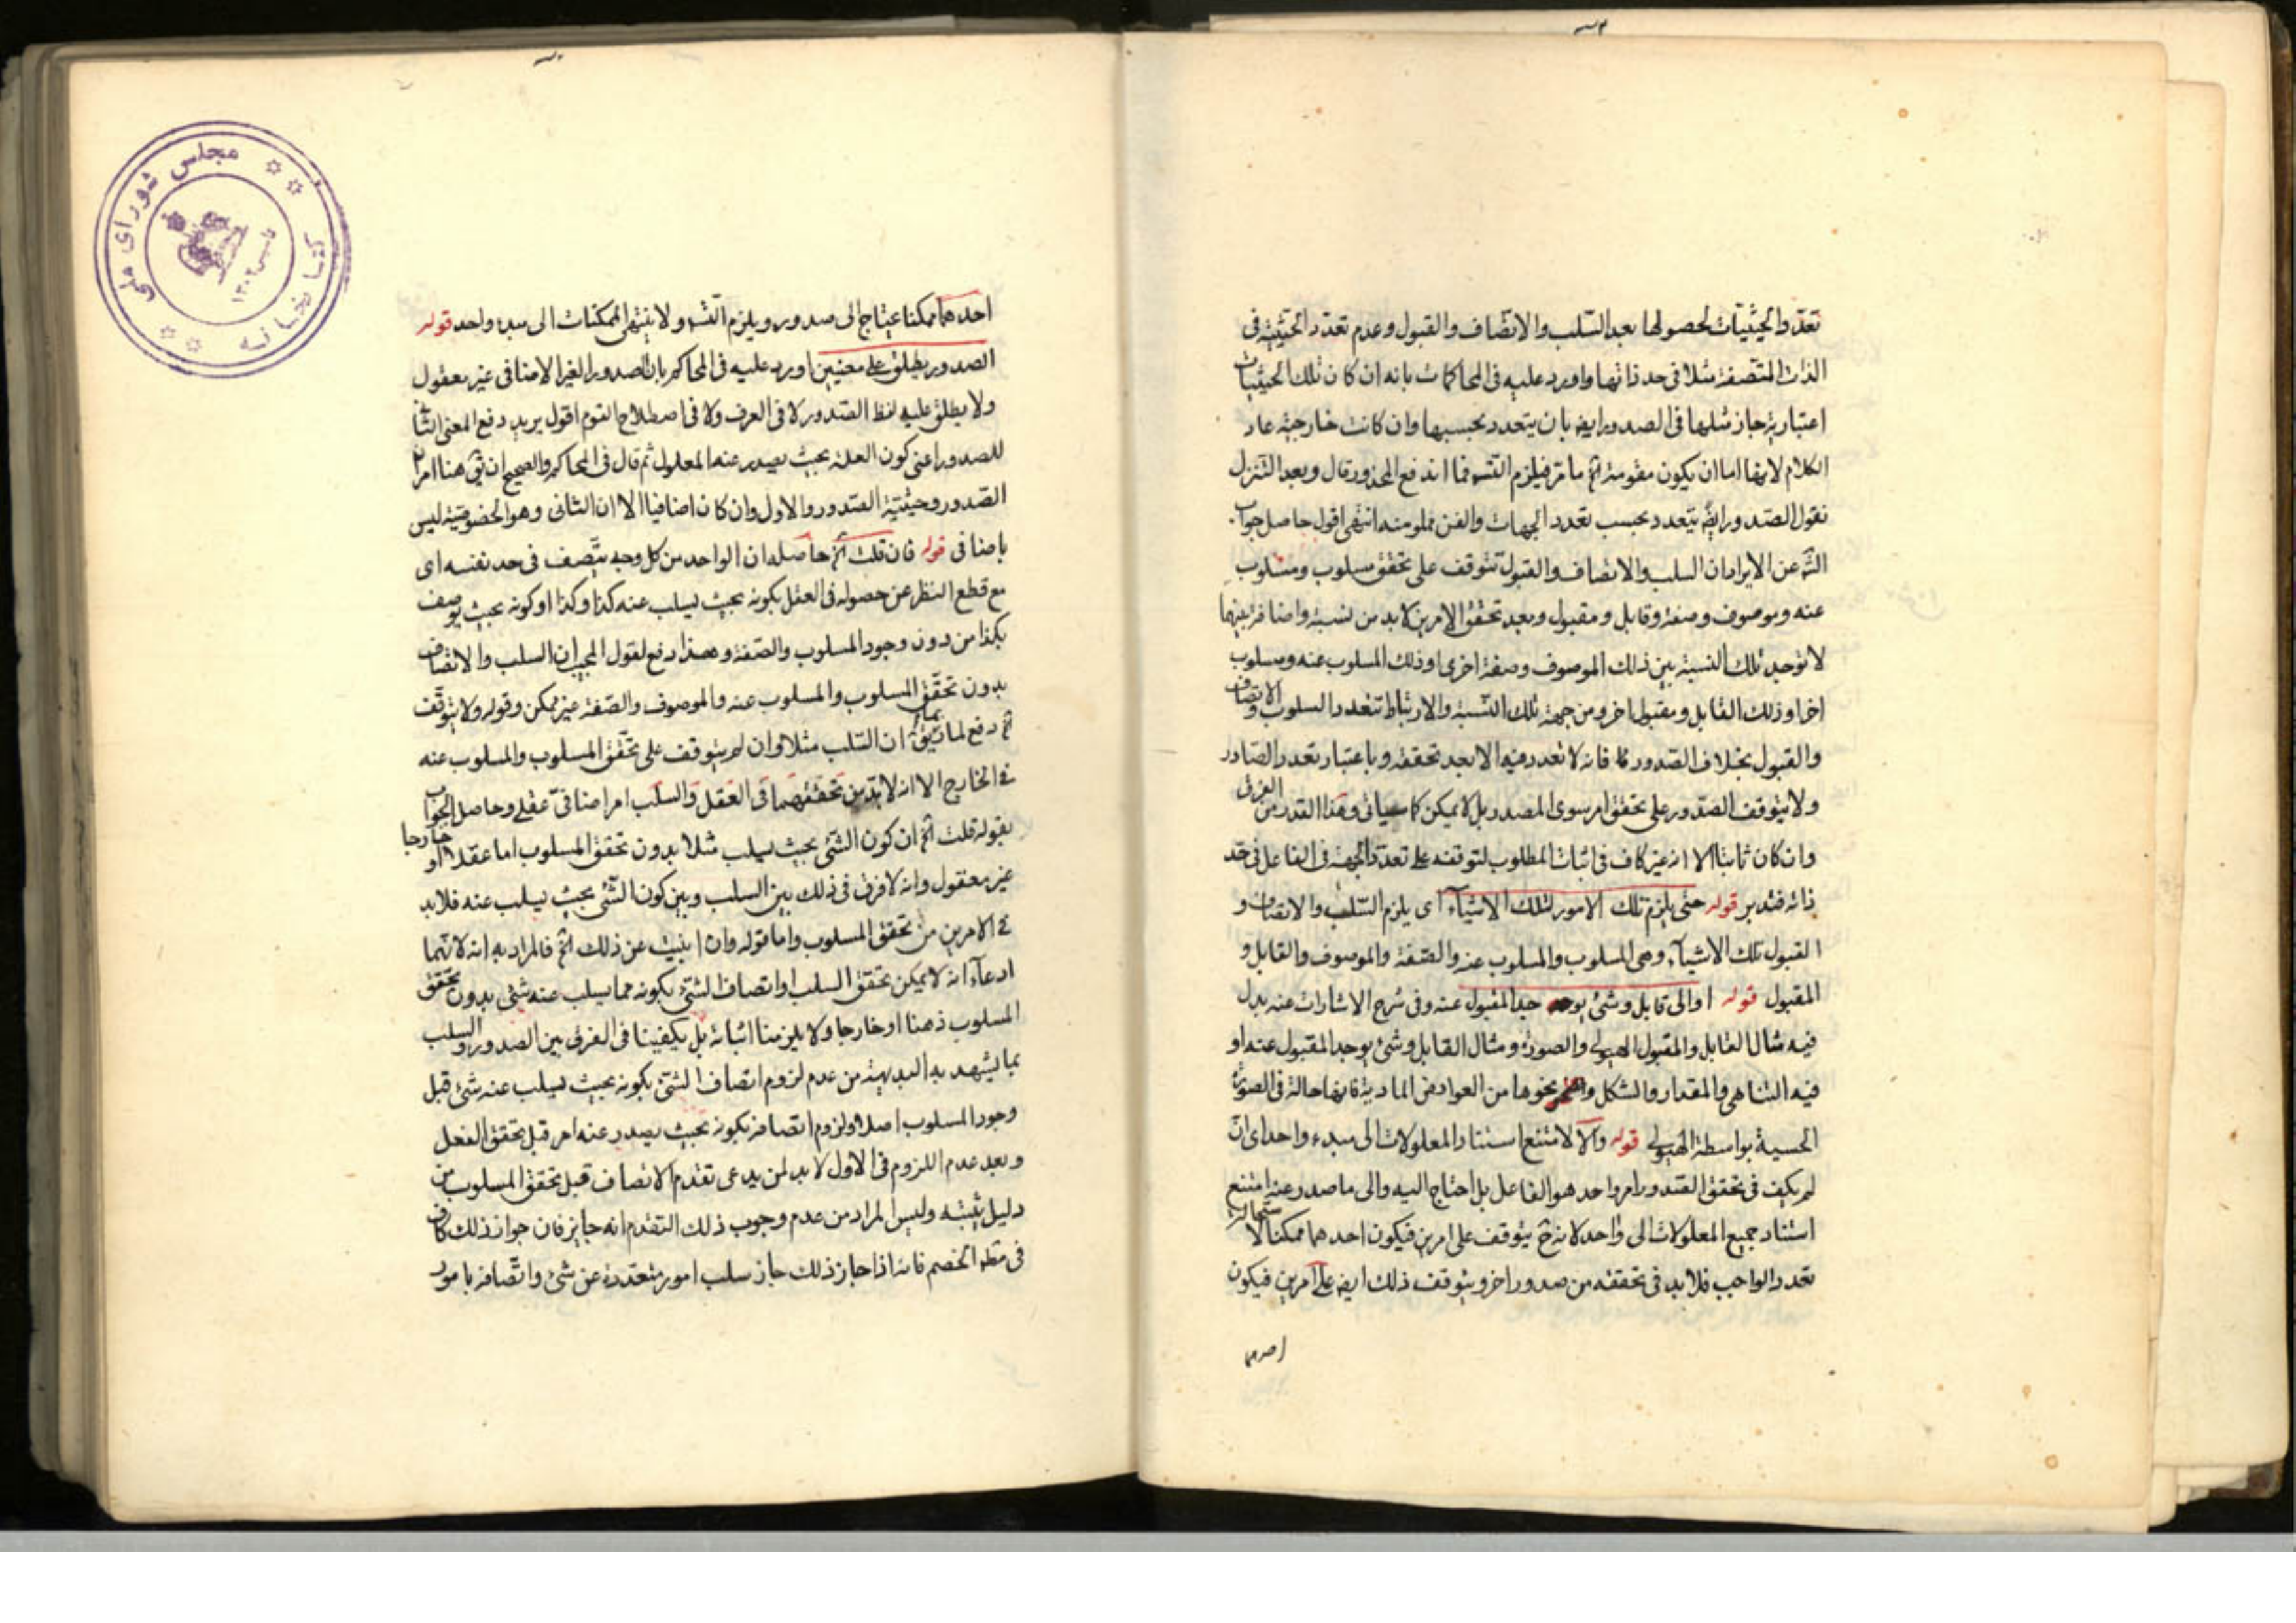 تعدد الحيثيات لحصولها بعد السلب والاتصاف والقبول وعدم تعدد الحيثية فى
الذات المتصفة مثلا فى حد ذاتها واورد عليه فى المحاكمات بانه ان كان تلك الحيثيات
اعتبارية جاز مثلها فى الصدور ايض بان يتعدد بحسبها وان كانت خارجية عاد
الكلام لانها اما ان يكون مقومة الخ ما مر فيلزم التسه فما اندفع المحذور قال وبعد التنزل
نقول الصدور ايض يتعدد بحسب تعدد الجهات والفن مملو منه انتهى اقول حاصل جواب
الش عن الايراد ان السلب والاتصاف والقبول تتوقف على تحقق مسلوب ومسلوب
عنه وموصوف وصفة وقابل ومقبول وبعد تحقق الامرين لابد من نسبة واضافة بينهما
لا توجد تلك النسبة بين ذلك الموصوف وصفة اخرى او ذلك المسلوب عنه ومسلوب
اخر او ذلك القابل ومقبول اخر ومن جهة تلك النسبة والارتباط تتعدد السلوب والاتصاف
والقبول بخلاف الصدور فانه لا تعدد فيه الا بعد تحققه وباعتبار تعدد الصادر
ولا يتوقف الصدور على تحقق امر سوى المصدر بل لا يمكن كما سياتى وهذا القدر من الفرق
وان كان ثابتا الا انه غير كاف فى اثبات المطلوب لتوقفه على تعدد الجهة فى الفاعل فى حد
ذاته فتدبر قوله حتى يلزم تلك الامور لتلك الاشياء اى يلزم السلب والاتصاف و
القبول تلك الاشياء وهى المسلوب والمسلوب عنه والصفة والموصوف والقابل و
المقبول قوله او الى قابل وشئ يوجد المقبول عنه وفى شرح الاشارات عنه بدل
فيه مثال القابل والمقبول الهيولى والصورة ومثال القابل وشئ يوجد المقبول عنه او
فيه التناهى والمقدار والشكل ونحوها من العوارض المادية فانها حالة فى الصورة
الجسمية بواسطة الهيولى قوله والا لامتنع استناد المعلولات الى مبدء واحد اى ان
لم يكف فى تحقق الصدور امر واحد هو الفاعل بل احتاج اليه والى ما صدر عنه امتنع
استناد جميع المعلولات الى واحد لانه ح يتوقف على امرين فيكون احدهما ممكنا لاستحالة
تعدد الواجب فلابد فى تحققه من صدور اخر ويتوقف ذلك ايض على امرين فيكون
احدهما
احدهما ممكنا يحتاج الى صدور ويلزم التسه ولا ينتهى الممكنات الى مبدء واحد قوله
الصدور يطلق على معنيين اورد عليه فى المحاكمه بان الصدور الغير الاضافى غير معقول
ولا يطلق عليه لفظ الصدور لا فى العرف ولا فى اصطلاح القوم اقول يريد دفع المعنى الثانى
للصدور اعنى كون العلة بحيث يصدر عنه المعلول ثم قال فى المحاكمه والصحيح ان يق هنا امران
الصدور وحيثية الصدور والاول وان كان اضافيا الا ان الثانى وهو الخصوصية ليس
باضافى قوله فان قلت الخ حاصله ان الواحد من كل وجه يتصف فى حد نفسه اى
مع قطع النظر عن حصوله فى العقل بكونه بحيث يسلب عنه كذا وكذا او كونه بحيث يوصف
بكذا من دون وجود المسلوب والصفة وهذا دفع لقول المجيب ان السلب والاتصاف
بدون تحقق المسلوب والمسلوب عنه والموصوف والصفة غير ممكن وقوله ولا يتوقف
الخ دفع لما ان السلب مثلا وان لم يتوقف على تحقق المسلوب والمسلوب عنه
فى الخارج الا انه لابد من تحققهما فى العقل والسلب امر اضافى عقلى وحاصل الجواب
بقوله قلت الخ ان كون الشئ بحيث يسلب مثلا بدون تحقق المسلوب اما عقلا او خارجا
غير معقول وانه لا فرق فى ذلك بين السلب وبين كون الشئ بحيث يسلب عنه فلابد
فى الامرين من تحقق المسلوب واما قوله وان ابيت عن ذلك الخ فالمراد به انه لا
ادعاء انه لا يمكن تحقق السلب او اتصاف الشئ بكونه مما يسلب عنه شئ بدون تحقق
المسلوب ذهنا او خارجا ولا يلزمنا اثباته بل يكفينا فى الفرق بين الصدور والسلب
بما يشهد به البديهة من عدم لزوم اتصاف الشئ بكونه بحيث يسلب عنه شئ قبل
وجود المسلوب اصلا ولزوم اتصافه بكونه بحيث يصدر عنه امر قبل تحقق الفعل
وبعد عدم اللزوم فى الاول لابد لمن يدعى تقدم الاتصاف قبل تحقق المسلوب من
دليل يثبته وليس المراد من عدم وجوب ذلك التقدم انه جايز فان جواز ذلك كاف
فى الخصم فانه اذا جاز ذلك جاز سلب امور متعددة عن شئ واتصافه بامور
مجلس شورای ملی
کتابخانه
تاسیس ۱۳۰۲